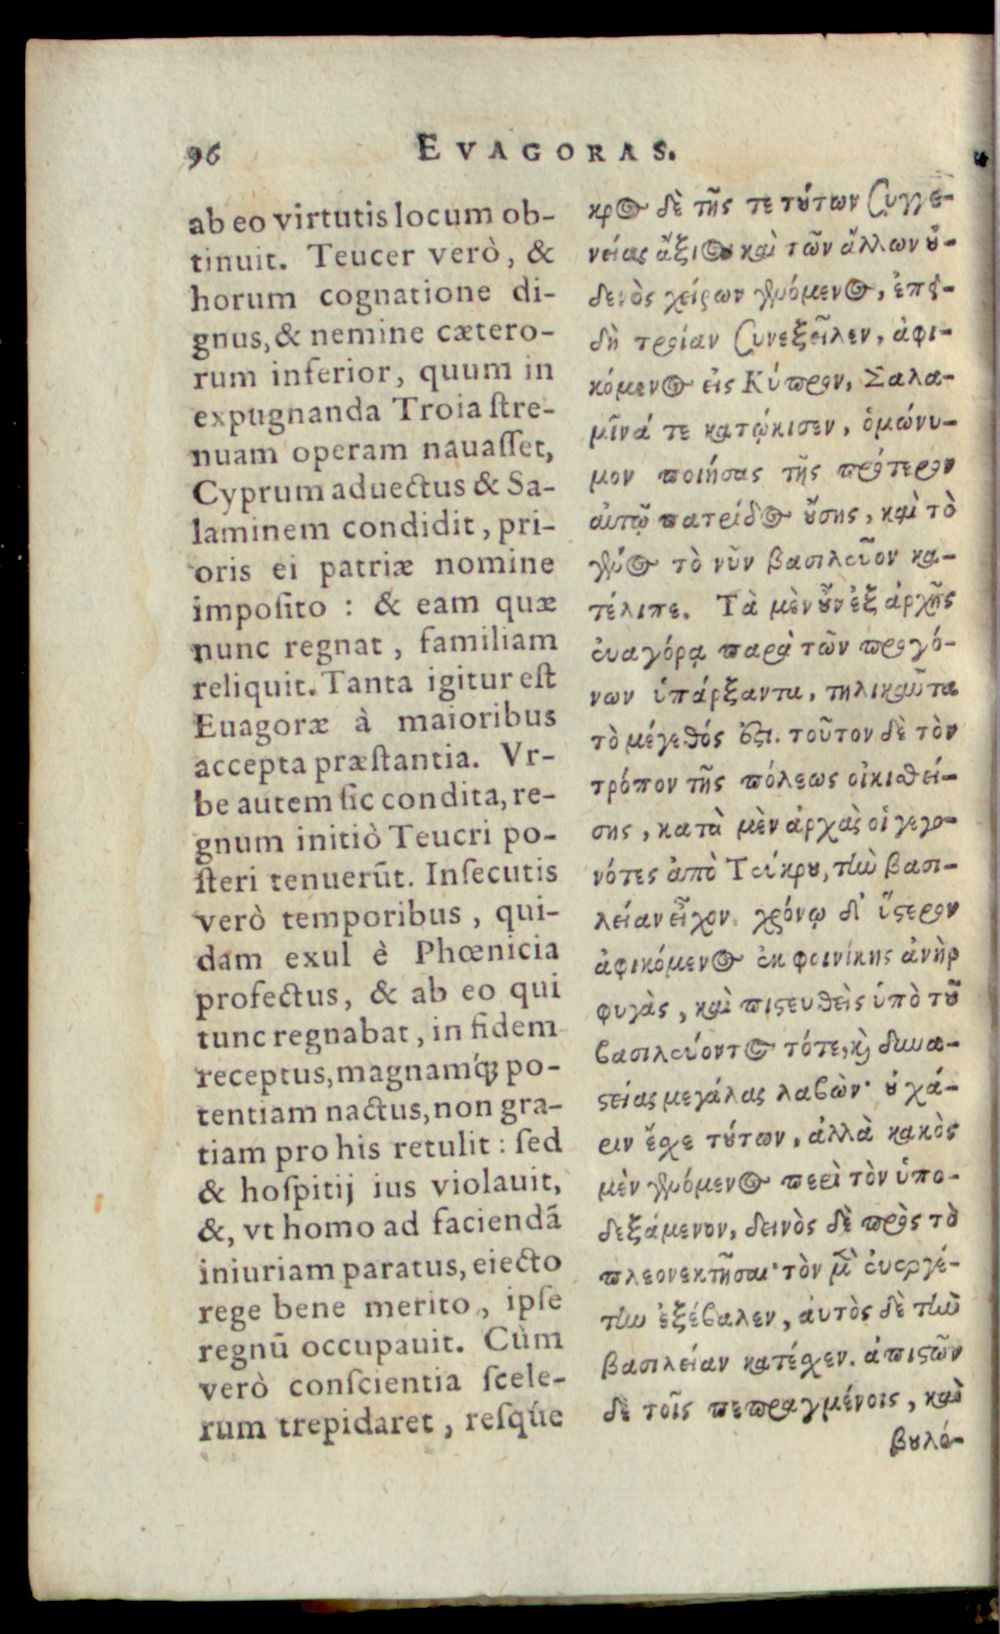 96 EVAGORAS.
ab eo virtutis locum ob-
tinuit. Teucer verò, &
horum cognatione di-
gnus, & nemine cætero-
rum inferior, quum in
expugnanda Troia ſtre-
nuam operam nauaſſet,
Cyprum aduectus & Sa-
laminem condidit, pri-
oris ei patriæ nomine
impoſito : & eam quæ
nunc regnat, familiam
reliquit. Tanta igitur eſt
Euagoræ à maioribus
accepta præſtantia. Vr-
be autem ſic condita, re-
gnum initiò Teucri po-
ſteri tenuerūt. Inſecutis
verò temporibus, qui-
dam exul è Phœnicia
profectus, & ab eo qui
tunc regnabat, in fidem
receptus, magnamq́; po-
tentiam nactus, non gra-
tiam pro his retulit : ſed
& hoſpitij ius violauit,
&, vt homo ad faciendā
iniuriam paratus, eiecto
rege bene merito, ipſe
regnū occupauit. Cùm
verò conſcientia ſcele-
rum trepidaret, reſq́ue
κρος δὲ τῆς τε τούτων συγγε-
νείας ἄξιος καὶ τῶν ἄλλων οὐ-
δενὸς χείρων γενόμενος, ἐπει-
δὴ τροίαν συνεξεῖλεν, ἀφι-
κόμενος εἰς Κύπρον, Σαλα-
μῖνά τε κατῴκισεν, ὁμώνυ-
μον ποιήσας τῆς πρότερον
αὐτῷ πατρίδος οὔσης, καὶ τὸ
γένος τὸ νῦν βασιλεῦον κα-
τέλιπε. Τὰ μὲν οὖν ἐξ ἀρχῆς
εὐαγόρᾳ παρὰ τῶν προγό-
νων ὑπάρξαντα, τηλικαῦτα
τὸ μέγεθός ἐστι. τοῦτον δὲ τὸν
τρόπον τῆς πόλεως οἰκισθεί-
σης, κατὰ μὲν ἀρχὰς οἱ γεγο-
νότες ἀπὸ Τεύκρου, τὴν βασι-
λείαν εἶχον. χρόνῳ δ' ὕστερον
ἀφικόμενος ἐκ φοινίκης ἀνὴρ
φυγὰς, καὶ πιστευθεὶς ὑπὸ τοῦ
βασιλεύοντος τότε, καὶ δυνα-
στείας μεγάλας λαβὼν· οὐ χά-
ριν ἔσχε τούτων, ἀλλὰ κακὸς
μὲν γενόμενος περὶ τὸν ὑπο-
δεξάμενον, δεινὸς δὲ πρὸς τὸ
πλεονεκτῆσαι· τὸν μὲν εὐεργέ-
την ἐξέβαλεν, αὐτὸς δὲ τὴν
βασιλείαν κατέσχεν. ἀπιστῶν
δὲ τοῖς πεπραγμένοις, καὶ
βουλό-